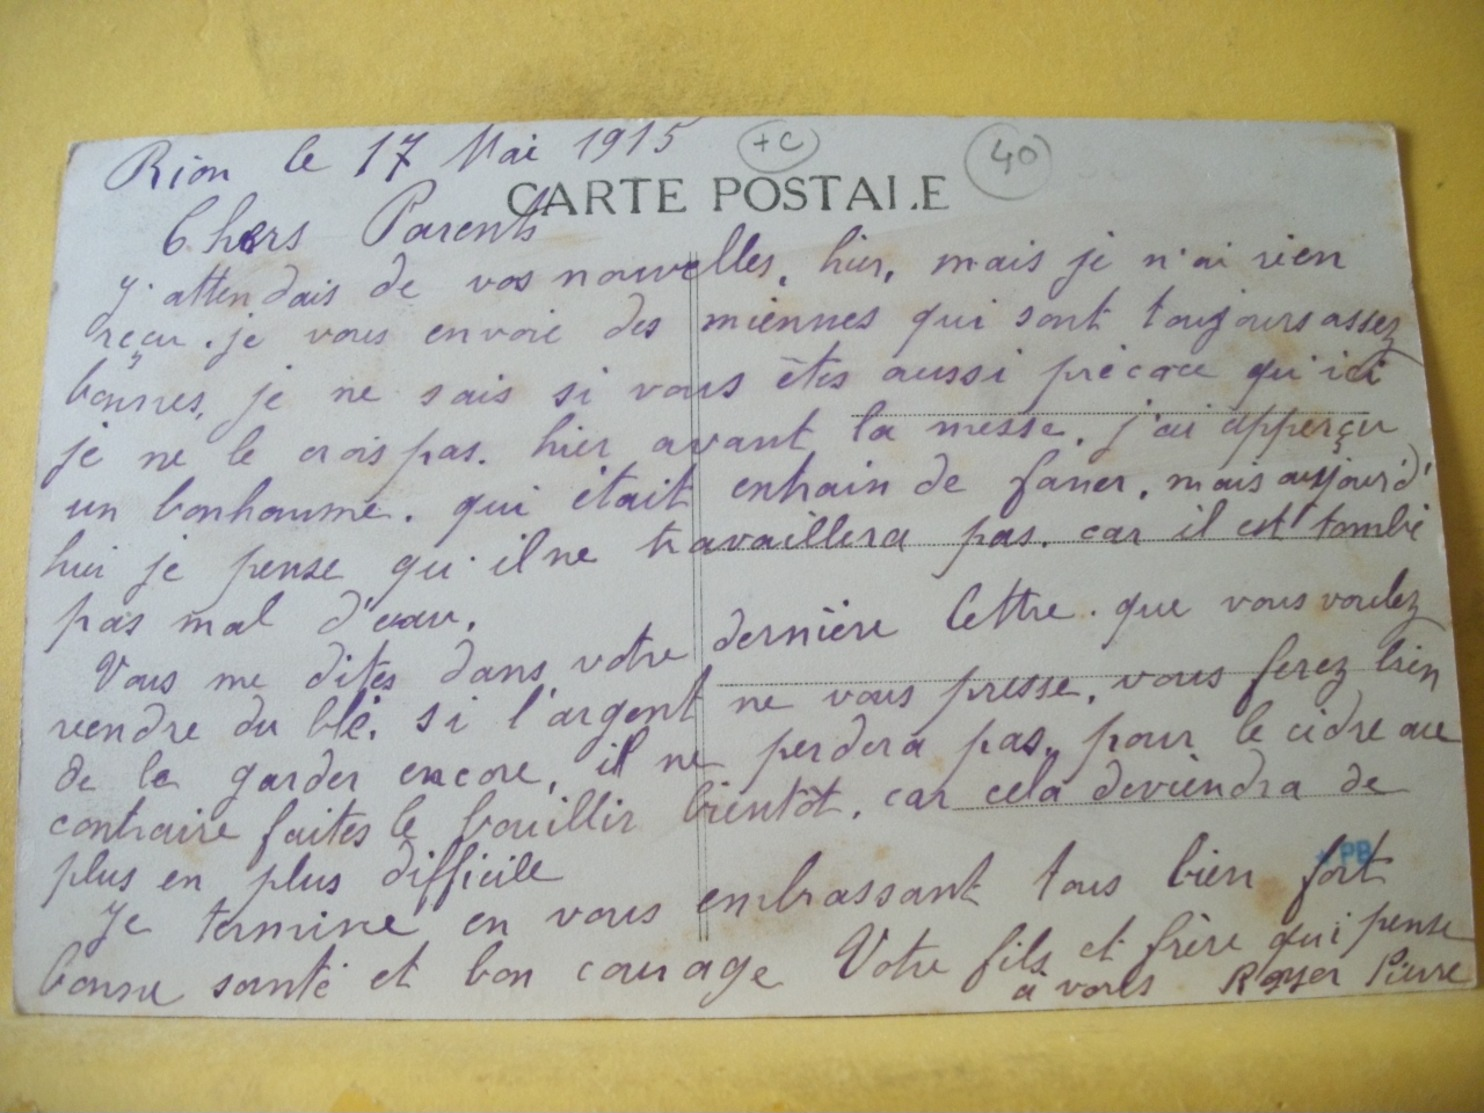 Rion le 17 Mai 1915
+C
40
CARTE POSTALE
Chers Parents
J'attendais de vos nouvelles, hier, mais je n'ai rien
reçu. je vous envoie des miennes qui sont toujours assez
bonnes, je ne sais si vous êtes aussi précoce qu'ici
je ne le crois pas. hier avant la messe, j'ai apperçu
un bonhomme. qui était entrain de faner, mais aujourd'
hui je pense qu'il ne travaillera pas. car il est tombé
pas mal d'eau.
Vous me dites dans votre dernière lettre. que vous voulez
vendre du blé. si l'argent ne vous presse, vous ferez bien
de le garder encore, il ne perdera pas, pour le cidre au
contraire faites le bouillir bientôt, car cela deviendra de
plus en plus difficile
PB
Je termine en vous embrassant tous bien fort
bonne santé et bon courage Votre fils et frère qui pense
à vous Royer Pierre